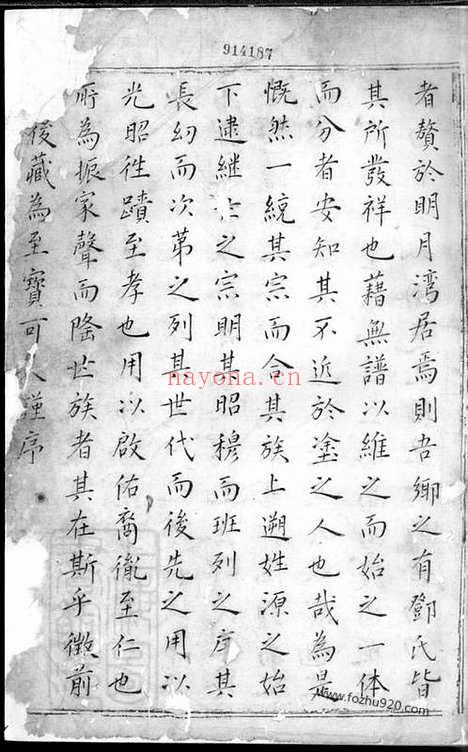 914187
者贅於明月湾居焉則吾鄉之有鄧氏皆
其所發祥也藉無譜以維之而始之一体
而分者安知其不近於塗之人也哉為是
慨然一統其宗而合其族上遡姓源之始
下逮継之宗明其昭穆而班列之序其
長幼而次第之列其世代而後先之用以
光昭徃蹟至孝也用以啟佑裔胤至仁也
所為振家聲而隆世族者其在斯乎徵前
後藏為至寶可謹序
nayona.cn
www.fozhu920.com